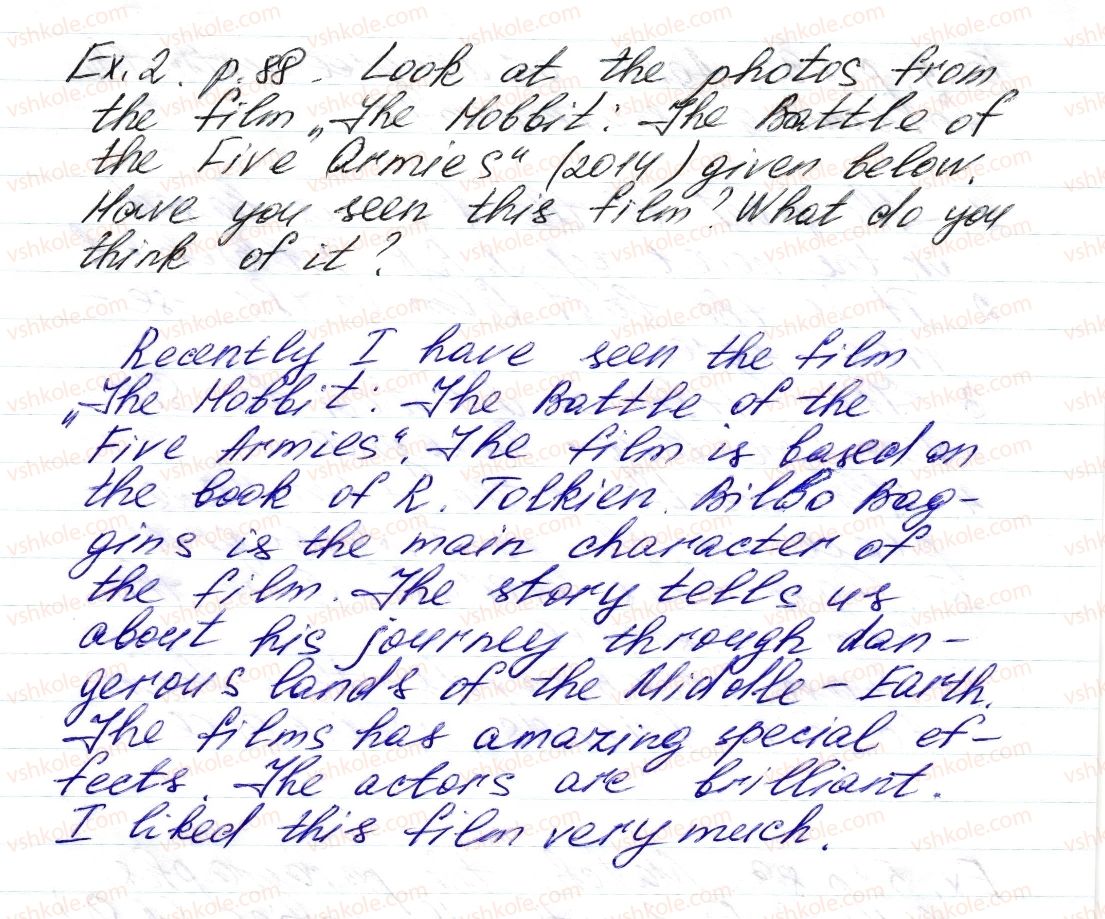 Ex. 2. p. 88. Look at the photos from
the film „The Hobbit: The Battle of
the Five Armies“ (2014) given below.
Have you seen this film? What do you
think of it?
Recently I have seen the film
„The Hobbit: The Battle of the
Five Armies“. The film is based on
the book of R. Tolkien. Bilbo Bag-
gins is the main character of
the film. The story tells us
about his journey through dan-
gerous lands of the Middle-Earth.
The films has amazing special ef-
fects. The actors are brilliant.
I liked this film very much.